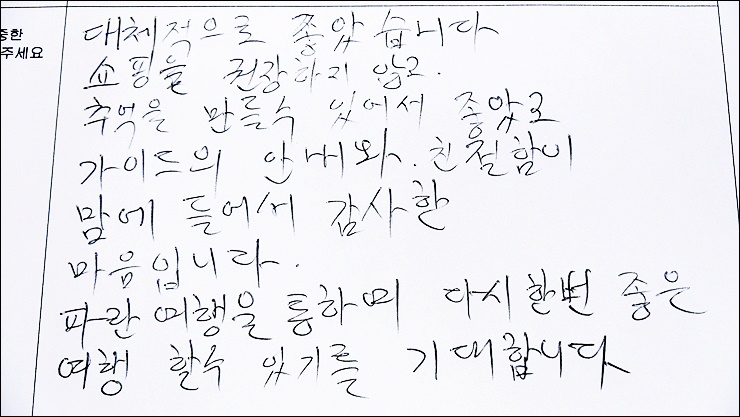 중한
주세요
대체적으로 좋았습니다
쇼핑을 권장하지 않고.
추억을 만들수 있어서 좋았고
가이드의 안내와. 친절함이
맘에 들어서 감사한
마음입니다.
파란여행을 통하여 다시한번 좋은
여행 할수 있기를 기대합니다